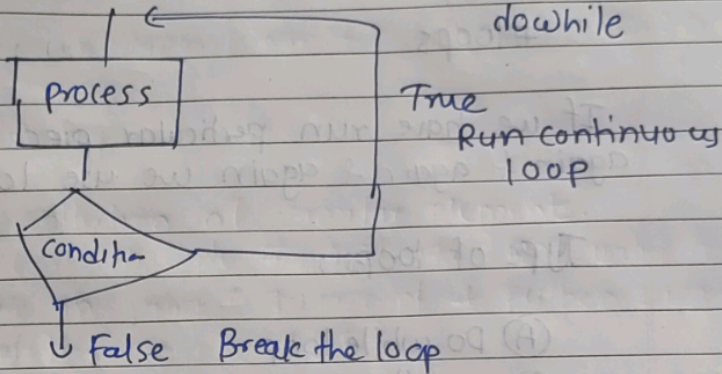 dowhile
process
True
Run continuous
loop
condition
False Break the loop